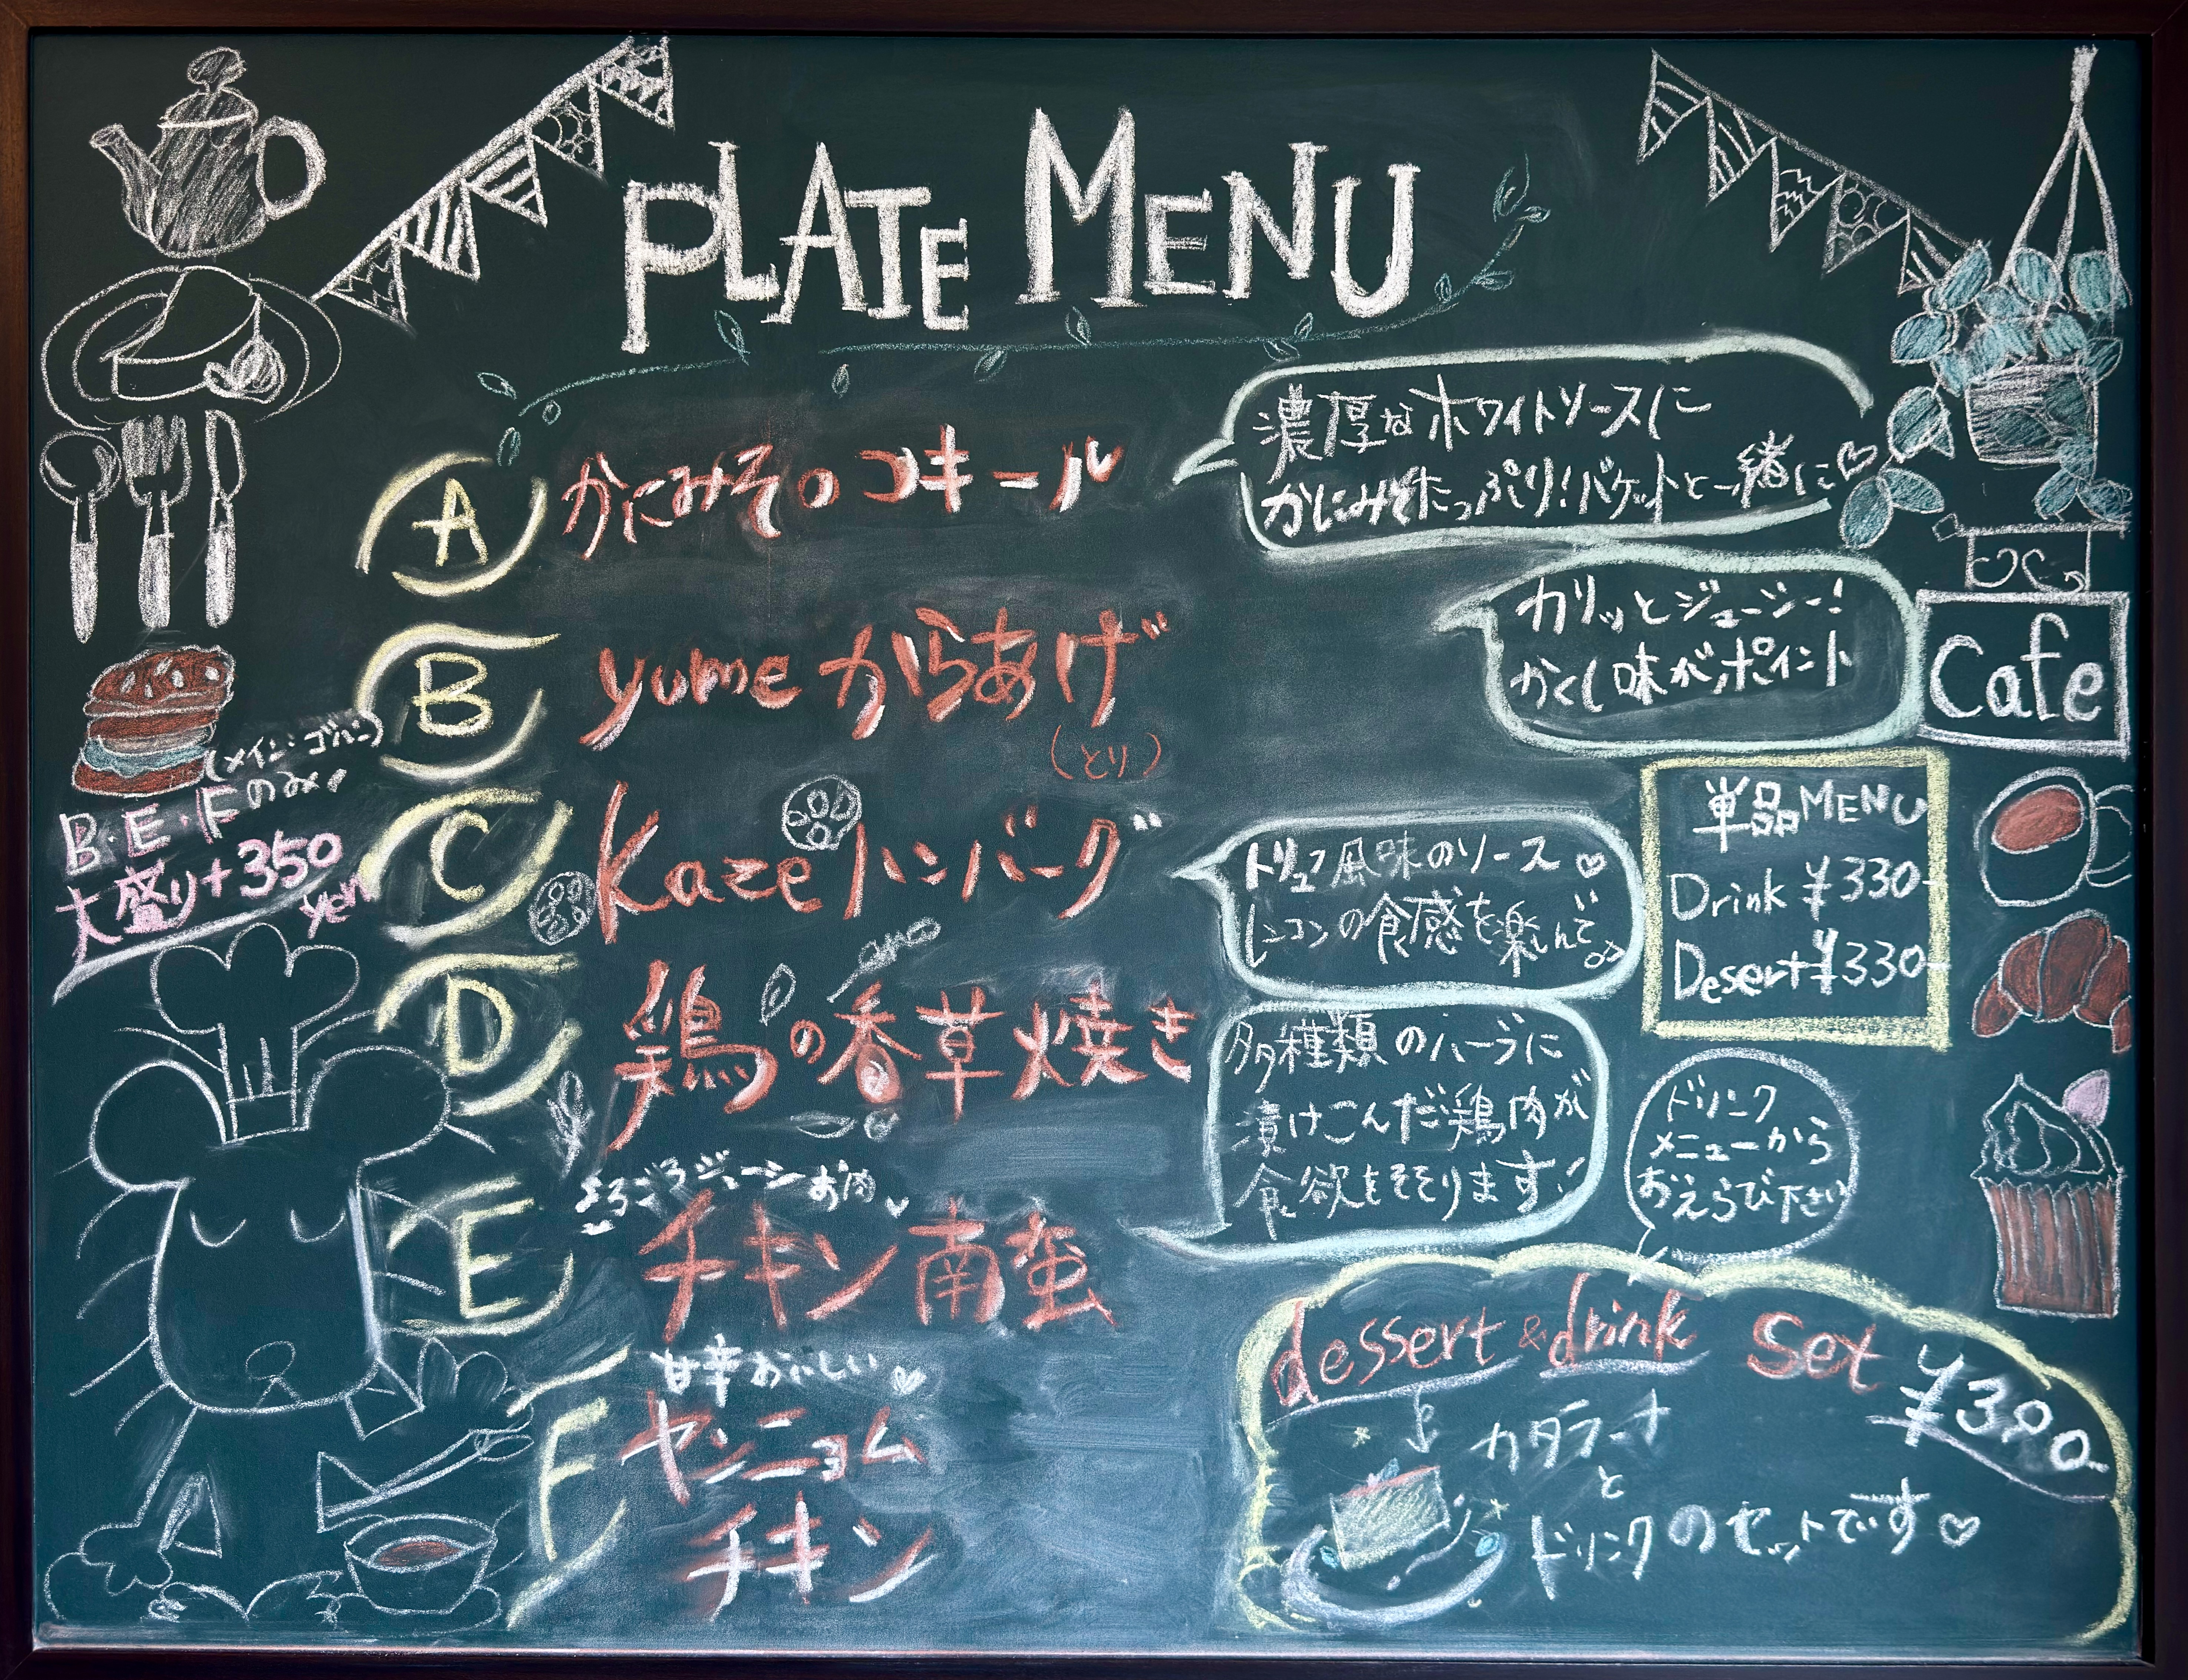 PLATE MENU
A かにみそのコキール
濃厚なホワイトソースに
かにみそたっぷり！バケットと一緒に♡
B yumeからあげ
（とり）
カリッとジューシー！
かくし味がポイント
（メイン・ゴハン）
B・E・Fのみ
大盛り+350
yen
C Kazeハンバーグ
トリュフ風味のソース♡
レンコンの食感を楽しんで♪
D 鶏の香草焼き
多種類のハーブに
漬けこんだ鶏肉が
食欲をそそります！
ジューシーお肉♥
E チキン南蛮
甘辛おいしい♡
F ヤンニョム
チキン
Cafe
単品MENU
Drink ¥330-
Desert ¥330-
ドリンク
メニューから
おえらび下さい
dessert & drink set ¥390
カタラーナ
と
ドリンクのセットです♡